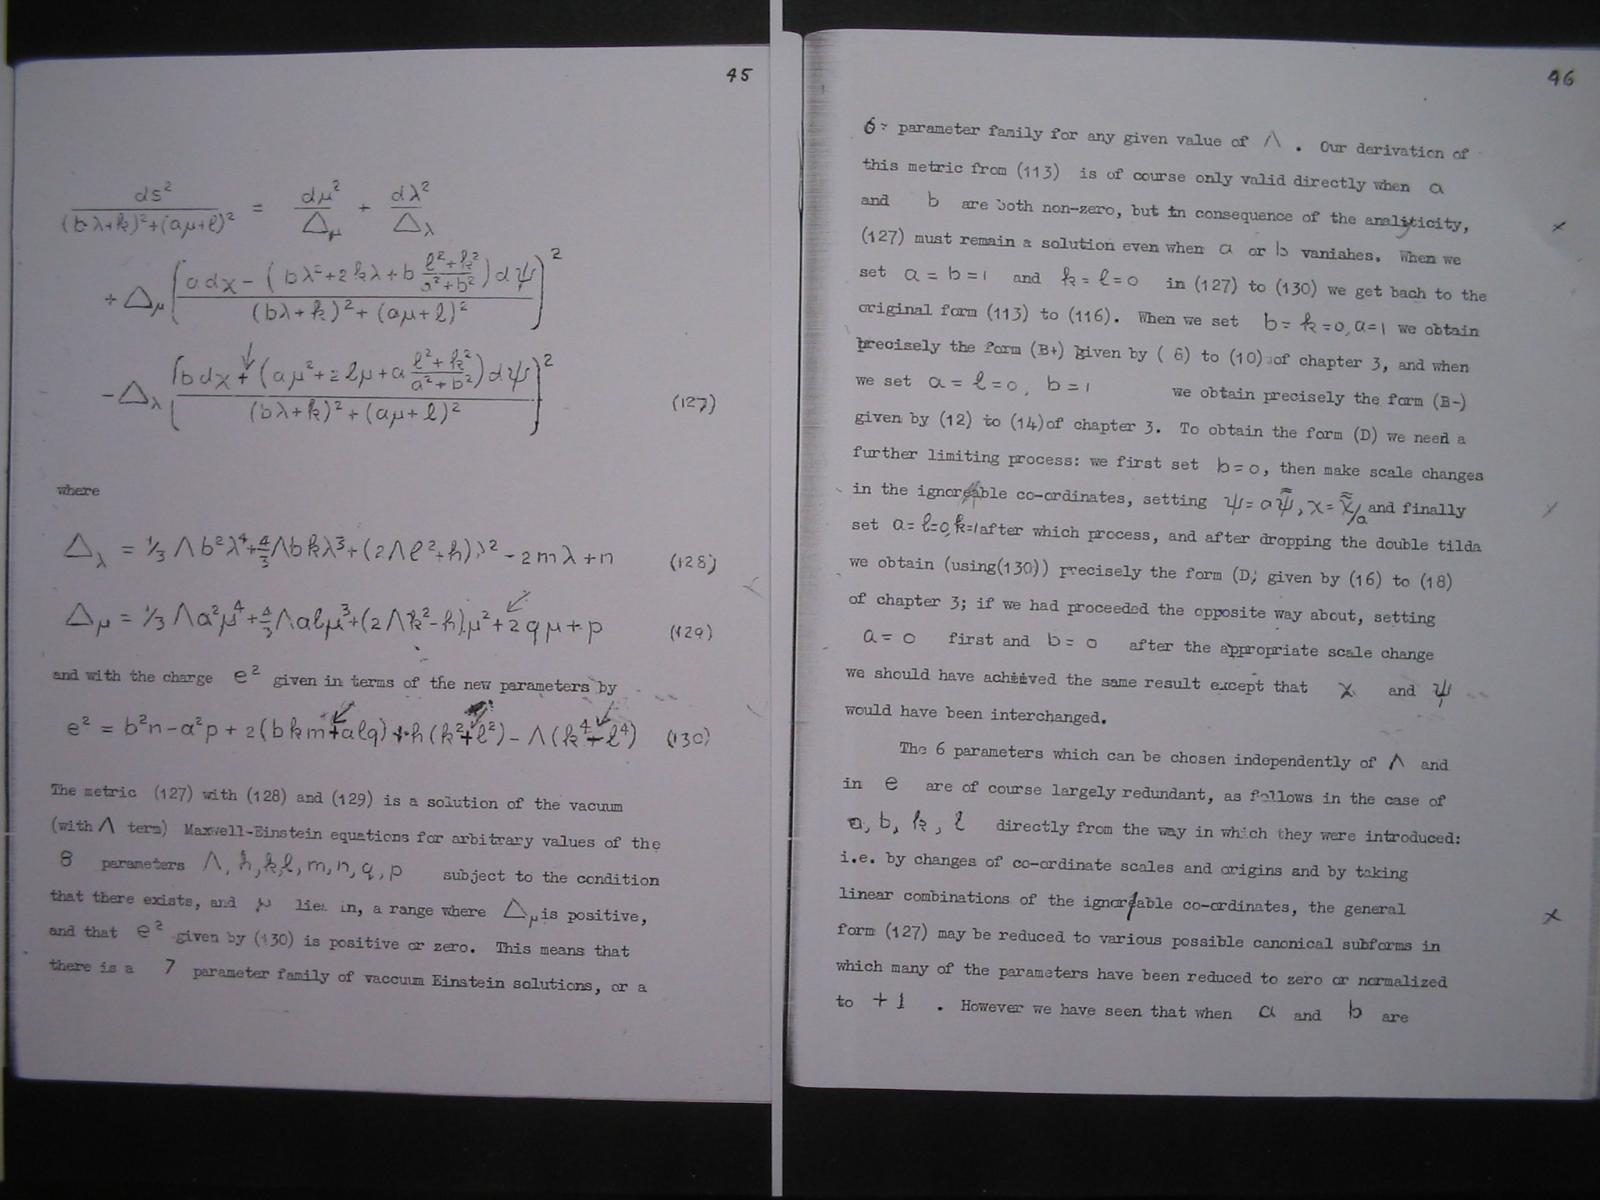 45
ds² / (bλ+k)²+(aμ+l)² = dμ²/Δμ + dλ²/Δλ
+ Δμ ( a dχ - (bλ²+2kλ+b (l²+k²)/(a²+b²)) dψ / (bλ+k)²+(aμ+l)² )²
- Δλ ( b dχ + (aμ²+2lμ+a (l²+k²)/(a²+b²)) dψ / (bλ+k)²+(aμ+l)² )² (127)
where
Δλ = 1/3 Λb²λ⁴+4/3Λbkλ³+(2Λl²+h)λ²-2mλ+n (128)
Δμ = 1/3 Λa²μ⁴+4/3Λalμ³+(2Λk²-h)μ²+2qμ+p (129)
and with the charge e² given in terms of the new parameters by
e² = b²n-a²p+2(bkm+alq)+h(k²+l²)-Λ(k⁴-l⁴) (130)
The metric (127) with (128) and (129) is a solution of the vacuum
(with Λ term) Maxwell-Einstein equations for arbitrary values of the
8 parameters Λ, h, k, l, m, n, q, p subject to the condition
that there exists, and μ lies in, a range where Δμ is positive,
and that e² given by (130) is positive or zero. This means that
there is a 7 parameter family of vaccuum Einstein solutions, or a
46
6- parameter family for any given value of Λ. Our derivation of
this metric from (113) is of course only valid directly when a
and b are both non-zero, but in consequence of the analyticity,
(127) must remain a solution even when a or b vanishes. When we
set a = b = 1 and k = l = 0 in (127) to (130) we get bach to the
original form (113) to (116). When we set b = k = 0, a = 1 we obtain
precisely the form (B+) given by ( 6) to (10) of chapter 3, and when
we set a = l = 0, b = 1 we obtain precisely the form (B-)
given by (12) to (14)of chapter 3. To obtain the form (D) we need a
further limiting process: we first set b = 0, then make scale changes
in the ignorable co-ordinates, setting ψ = aψ̃̃, χ = χ̃̃/a and finally
set a = l = 0, k = 1 after which process, and after dropping the double tilda
we obtain (using(130)) precisely the form (D) given by (16) to (18)
of chapter 3; if we had proceeded the opposite way about, setting
a = 0 first and b = 0 after the appropriate scale change
we should have achieved the same result except that χ and ψ
would have been interchanged.
The 6 parameters which can be chosen independently of Λ and
in e are of course largely redundant, as follows in the case of
a, b, k, l directly from the way in which they were introduced:
i.e. by changes of co-ordinate scales and origins and by taking
linear combinations of the ignorable co-ordinates, the general
form (127) may be reduced to various possible canonical subforms in
which many of the parameters have been reduced to zero or normalized
to +1 . However we have seen that when a and b are